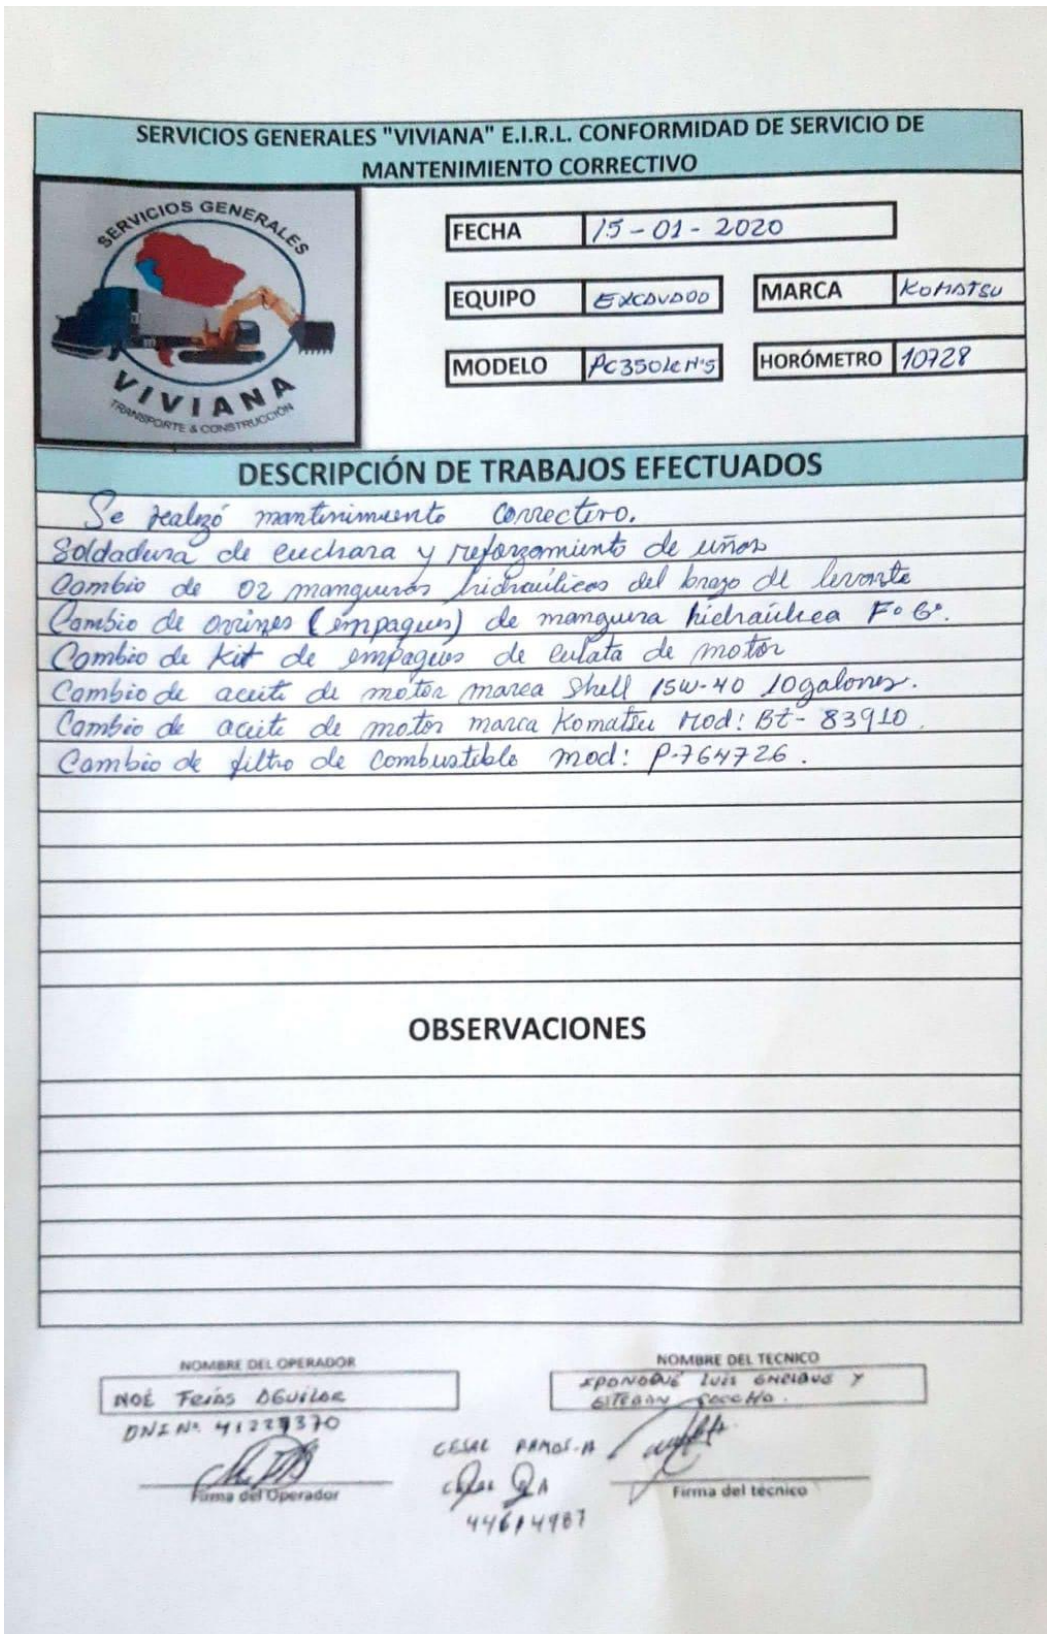 SERVICIOS GENERALES "VIVIANA" E.I.R.L. CONFORMIDAD DE SERVICIO DE
MANTENIMIENTO CORRECTIVO
SERVICIOS GENERALES
VIVIANA
TRANSPORTE & CONSTRUCCIÓN
FECHA 15-01-2020
EQUIPO EXCAVADO MARCA KOMATSU
MODELO PC350LC N°5 HORÓMETRO 10728
DESCRIPCIÓN DE TRABAJOS EFECTUADOS
Se realizó mantenimiento correctivo.
Soldadura de cuchara y reforzamiento de uñas
Cambio de 02 mangueras hidraúlicas del brazo de levante
Cambio de orrines (empaques) de manguera hidraúlica F° G°.
Cambio de Kit de empaques de culata de motor
Cambio de aceite de motor marca Shell 15W-40 10 galones.
Cambio de aceite de motor marca Komatsu Mod: Bt-83910.
Cambio de filtro de Combustible mod: P-764726.
OBSERVACIONES
NOMBRE DEL OPERADOR
NOMBRE DEL TECNICO
NOÉ Frias AGuilar
Luis Y
ESTEBAN
DNI N° 41227370
CESAR RAMOS.A
Firma del Operador
Firma del técnico
44614987